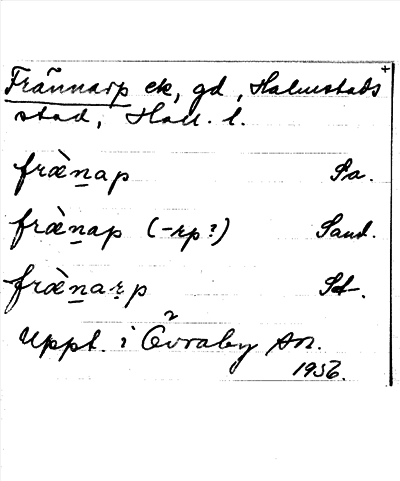 Frännarp ek, gd, Halmstads +
stad, Hall. l.
fræ̀n̲ap Sa.
fræ̀n̲ap (-rp?) Sand.
fræ̀n̲aṛp St.
Uppt. i Övraby sn.
1956.